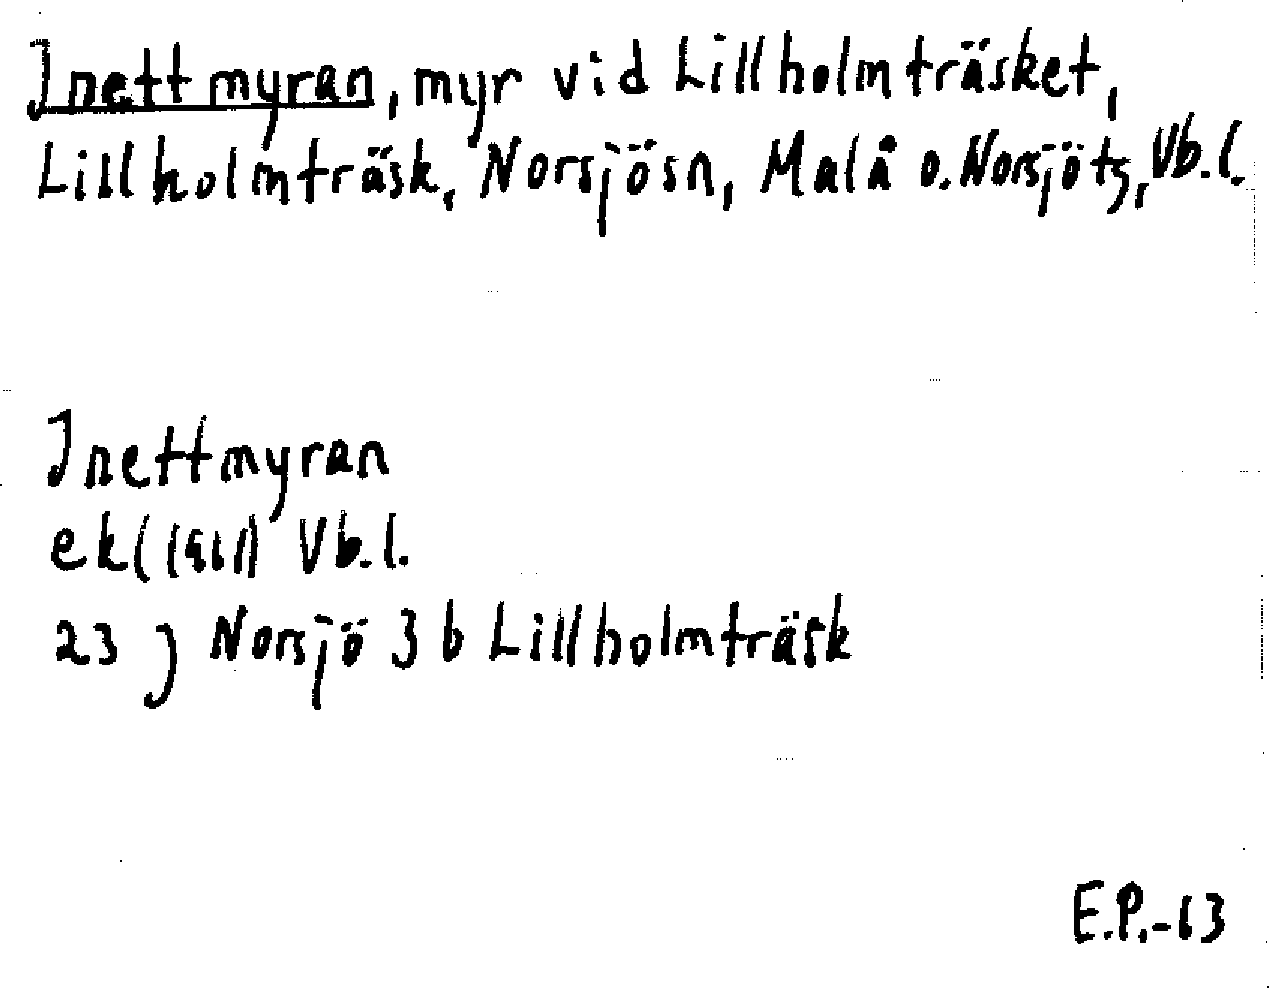 Inettmyran, myr vid Lillholmträsket,
Lillholmträsk, Norsjösn, Malå o. Norsjötg, Vb.l.
Inettmyran
ek (1961) Vb.l.
23 J Norsjö 3 b Lillholmträsk
E.P.-63